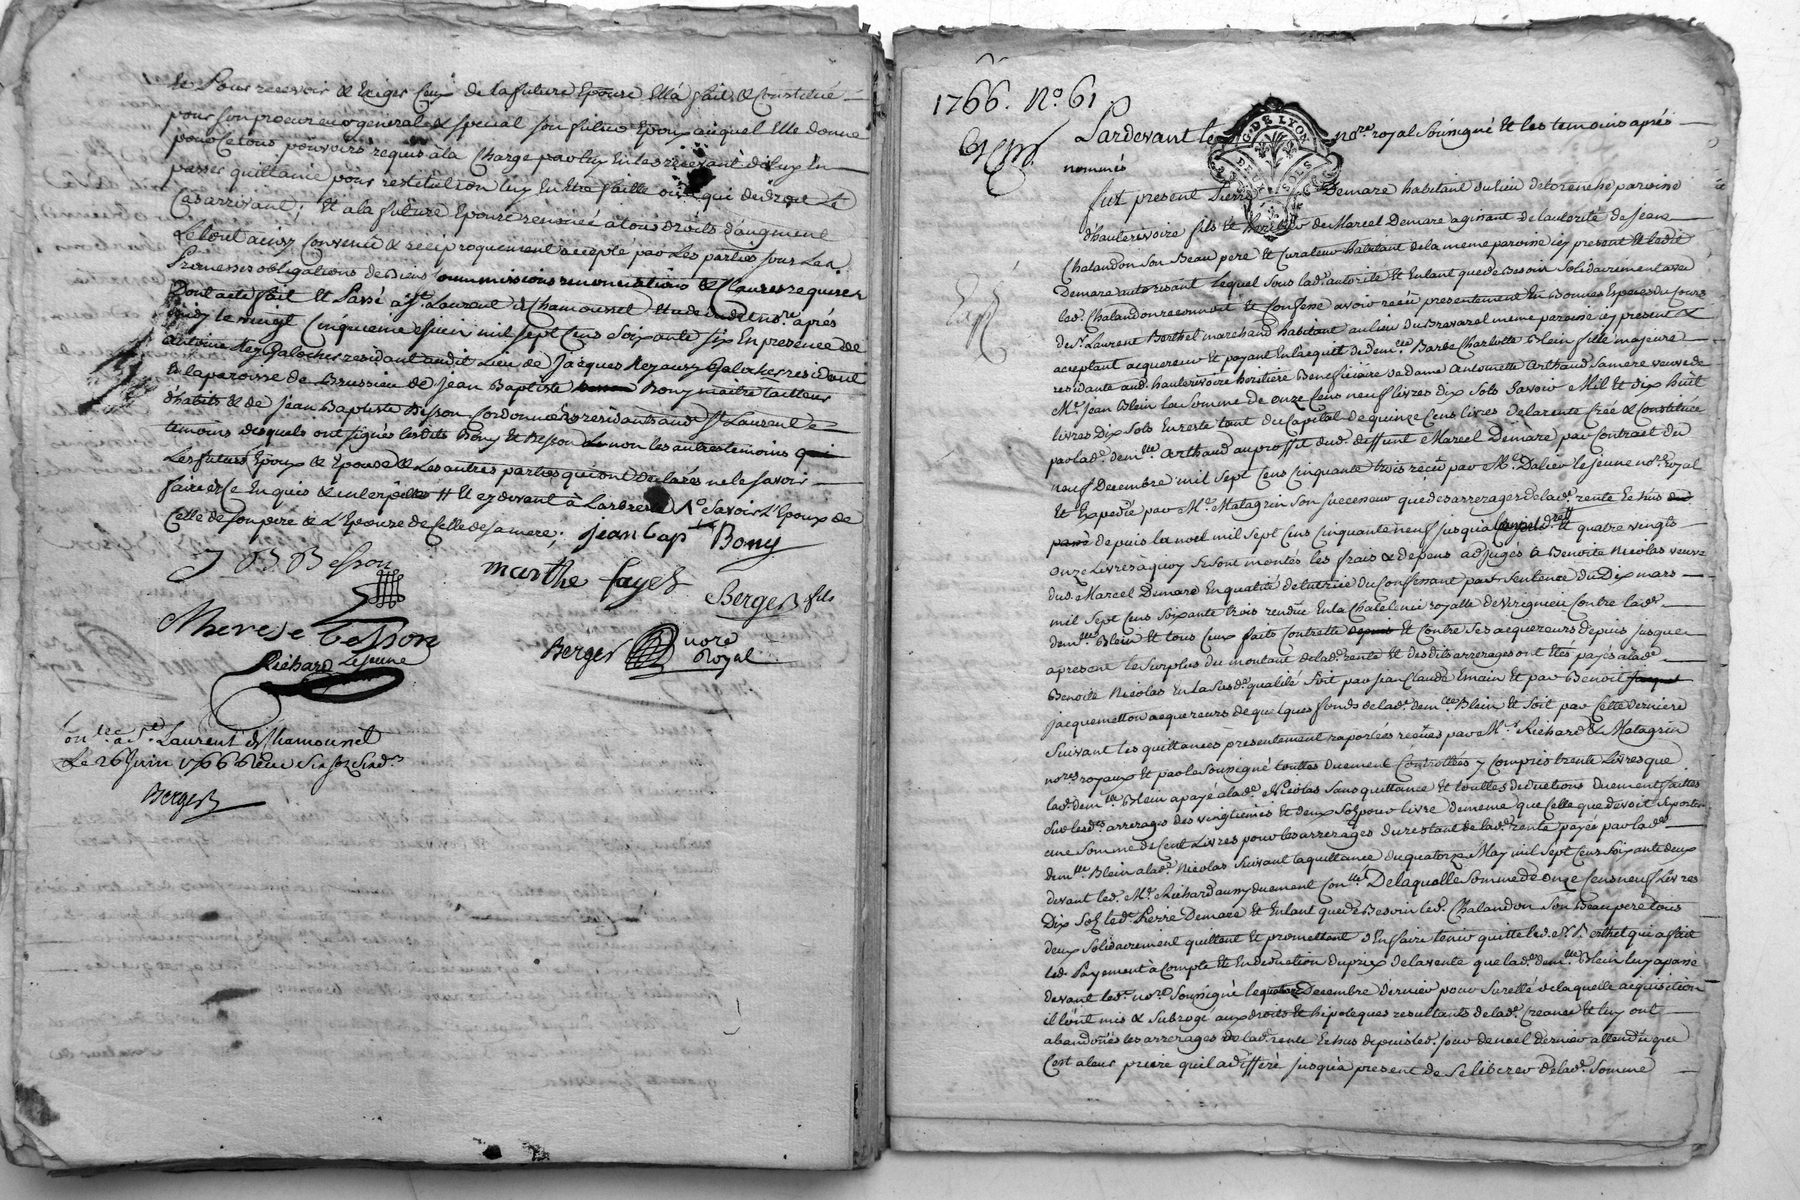 et Pour recevoir & Exiger Ceux de la future Epouse Ella fait & Constitué
pour son procureur general & special son futur Epoux auquel Elle donne
pour ce tous pouvoirs requis a la Charge par luy En les recevant d'elux En
passer quittance pour restitution luy En Etre faitte ou a qui de droit Le
Cas arrivant; Et a la future Epouse renoncé a tous droits d'augment
Le tout ainsy Convenu & reciproquement accepté par Les parties sous Les
Promesses obligations de Biens soummissions renonciations & Clauses requises
Dont acte fait Et Passé a St. Laurent de Chamousset Etude dudit nore. après
midy le vingt Cinquieme juin mil sept Cens Soixante six En presence de
Antoine Rey Galochier residant audit Lieu de Jacques Rey aussy Galochier residant
En la paroisse de Brussieu de Jean Baptiste Bony maitre tailleur
d'habits & de Jean Baptiste Besson Cordonnier residants aud. St Laurent
temoins desquels ont signés lesdits Bony Et Besson non les autres temoins qui
Les futurs Epoux & Epouse & Les autres parties qui ont declarés ne le sçavoir
faire de ce Enquis & interpellés Et cy devant à Larbresle Sçavoir L'Epoux de
Celle de son pere & L'Epouse de Celle de sa mere; Jean Bap Bony
J B Besson
marthe fayet
Berger fils
Therese besson
Berger nore
Royal
Richard Lejeune
Con.lée a St. Laurent de Chamousset
Le 26 Juin 1766
Berger
1766. No. 61
Pardevant le nore. royal Soussigné Et les temoins après
nommés
fut present Pierre Demare habitant du lieu de toranche paroisse
d'hauterivoire fils Et heritier de Marcel Demare agissant de l'autorité de Jean
Chalandon Son Beau pere Et Curateur habitant de la meme paroisse icy present Et ledit
Demare autorisant Lequel Sous lad. autorité Et En tant que de Besoin Solidairement avec
led. Chalandon reconnoit Et Confesse avoir reçu presentement En Bonnes Especes du Cours
de Sr. Laurent Berthet marchand habitant au lieu du Bravazel meme paroisse icy present &
acceptant acquereur Et payant En l'acquit de dem.lle Barbe Charlotte Blein fille majeure
residante aud. hauterivoire heritiere Beneficiaire de dame Antoinette Arthaud Sa mere veuve de
Mr. Jean Blein La Somme de onze Cens neuf livres dix Sols Savoir Mil Et dix huit
livres Dix Sols En reste tant du Capital de quinze Cens livres de la rente Créé & Constituée
par lad. dem.lle Arthaud au proffit dud. deffunt Marcel Demare par Contract du
neuf Decembre mil Sept Cens Cinquante trois reçu par Me. Dalier lejeune nore. Royal
Et Expedié par Me. Matagrin Son Successeur que des arrerages de lad. rente Echus
depuis la noel mil Sept Cens Cinquante neuf jusqu'a Et quatre vingts
onze livres à quoy Se Sont montés les frais & depens adjugés a Benoite Nicolas veuve
dud. Marcel Demare En qualité de tutrice du Confessant par Sentence du Dix mars
mil Sept Cens Soixante trois rendue En la Chatelenie royalle de Virigneu Contre lad.
dem.lle Blein Et tous Ceux faits Contr'elle Et Contre Ses acquereurs depuis jusque
a present le Surplus du montant de lad. rente Et desdits arrerages ont Etés payés a lad.
Benoite Nicolas En La Susd. qualité Soit par jean Claude Emain Et par Benoit
jacquemetton acquereurs de quelques fonds de lad. dem.lle Blein Et Soit par Cette derniere
Suivant les quittances presentement raportées reçues par Mrs. Richard & Matagrin
nores. royaux Et par le Soussigné touttes duement Controllées y Compris trente Livres que
lad. dem.lle Blein a payé a lad. Nicolas Sans quittance Et touttes deductions duement faittes
Sur lesd. arrerages des vingtiemes Et deux Sols pour livre de meme que Celle que devoit Suporter
une Somme de Cent Livres pour les arrerages du restant de lad. rente payée par lad.
dem.lle Blein a lad. Nicolas Suivant la quittance du quatorze May mil Sept Cens Soixante deux
devant led. Me. Richard aussy duement Con.lée De laquelle Somme de onze Cens neuf Livres
Dix Sols led. Pierre Demare Et En tant que de Besoin led. Chalandon Son Beau pere tous
deux Solidairement quittent Et promettent d'En faire tenir quitte led. Sr. Berthet qui a fait
led. Payement à Compte Et En deduction du prix de la vente que lad. dem.lle Blein luy a passé
devant led. nore. Soussigné le quatorze Decembre dernier pour Sureté de laquelle acquisition
il l'ont mis & Subrogé aux droits Et hipoteques resultants de lad. Creance Et luy ont
abandonés les arrerages de lad. rente Echus depuis led. jour de noel dernier attendu que
C'est a leur priere qu'il a differé jusqu'a present de Se liberer de lad. Somme